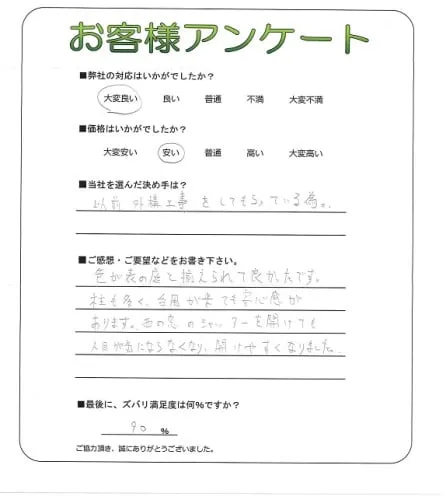 お客様アンケート
■弊社の対応はいかがでしたか？
大変良い 良い 普通 不満 大変不満
■価格はいかがでしたか？
大変安い 安い 普通 高い 大変高い
■当社を選んだ決め手は？
以前 外構工事 をしてもらっている為。
■ご感想・ご要望などをお書き下さい。
色が表の庭と揃えられて良かったです。
柱も多く、台風が来ても安心感が
あります。西の窓のシャッターを開けても
人目が気にならなくなり、開けやすくなりました。
■最後に、ズバリ満足度は何%ですか？
90 %
ご協力頂き、誠にありがとうございました。